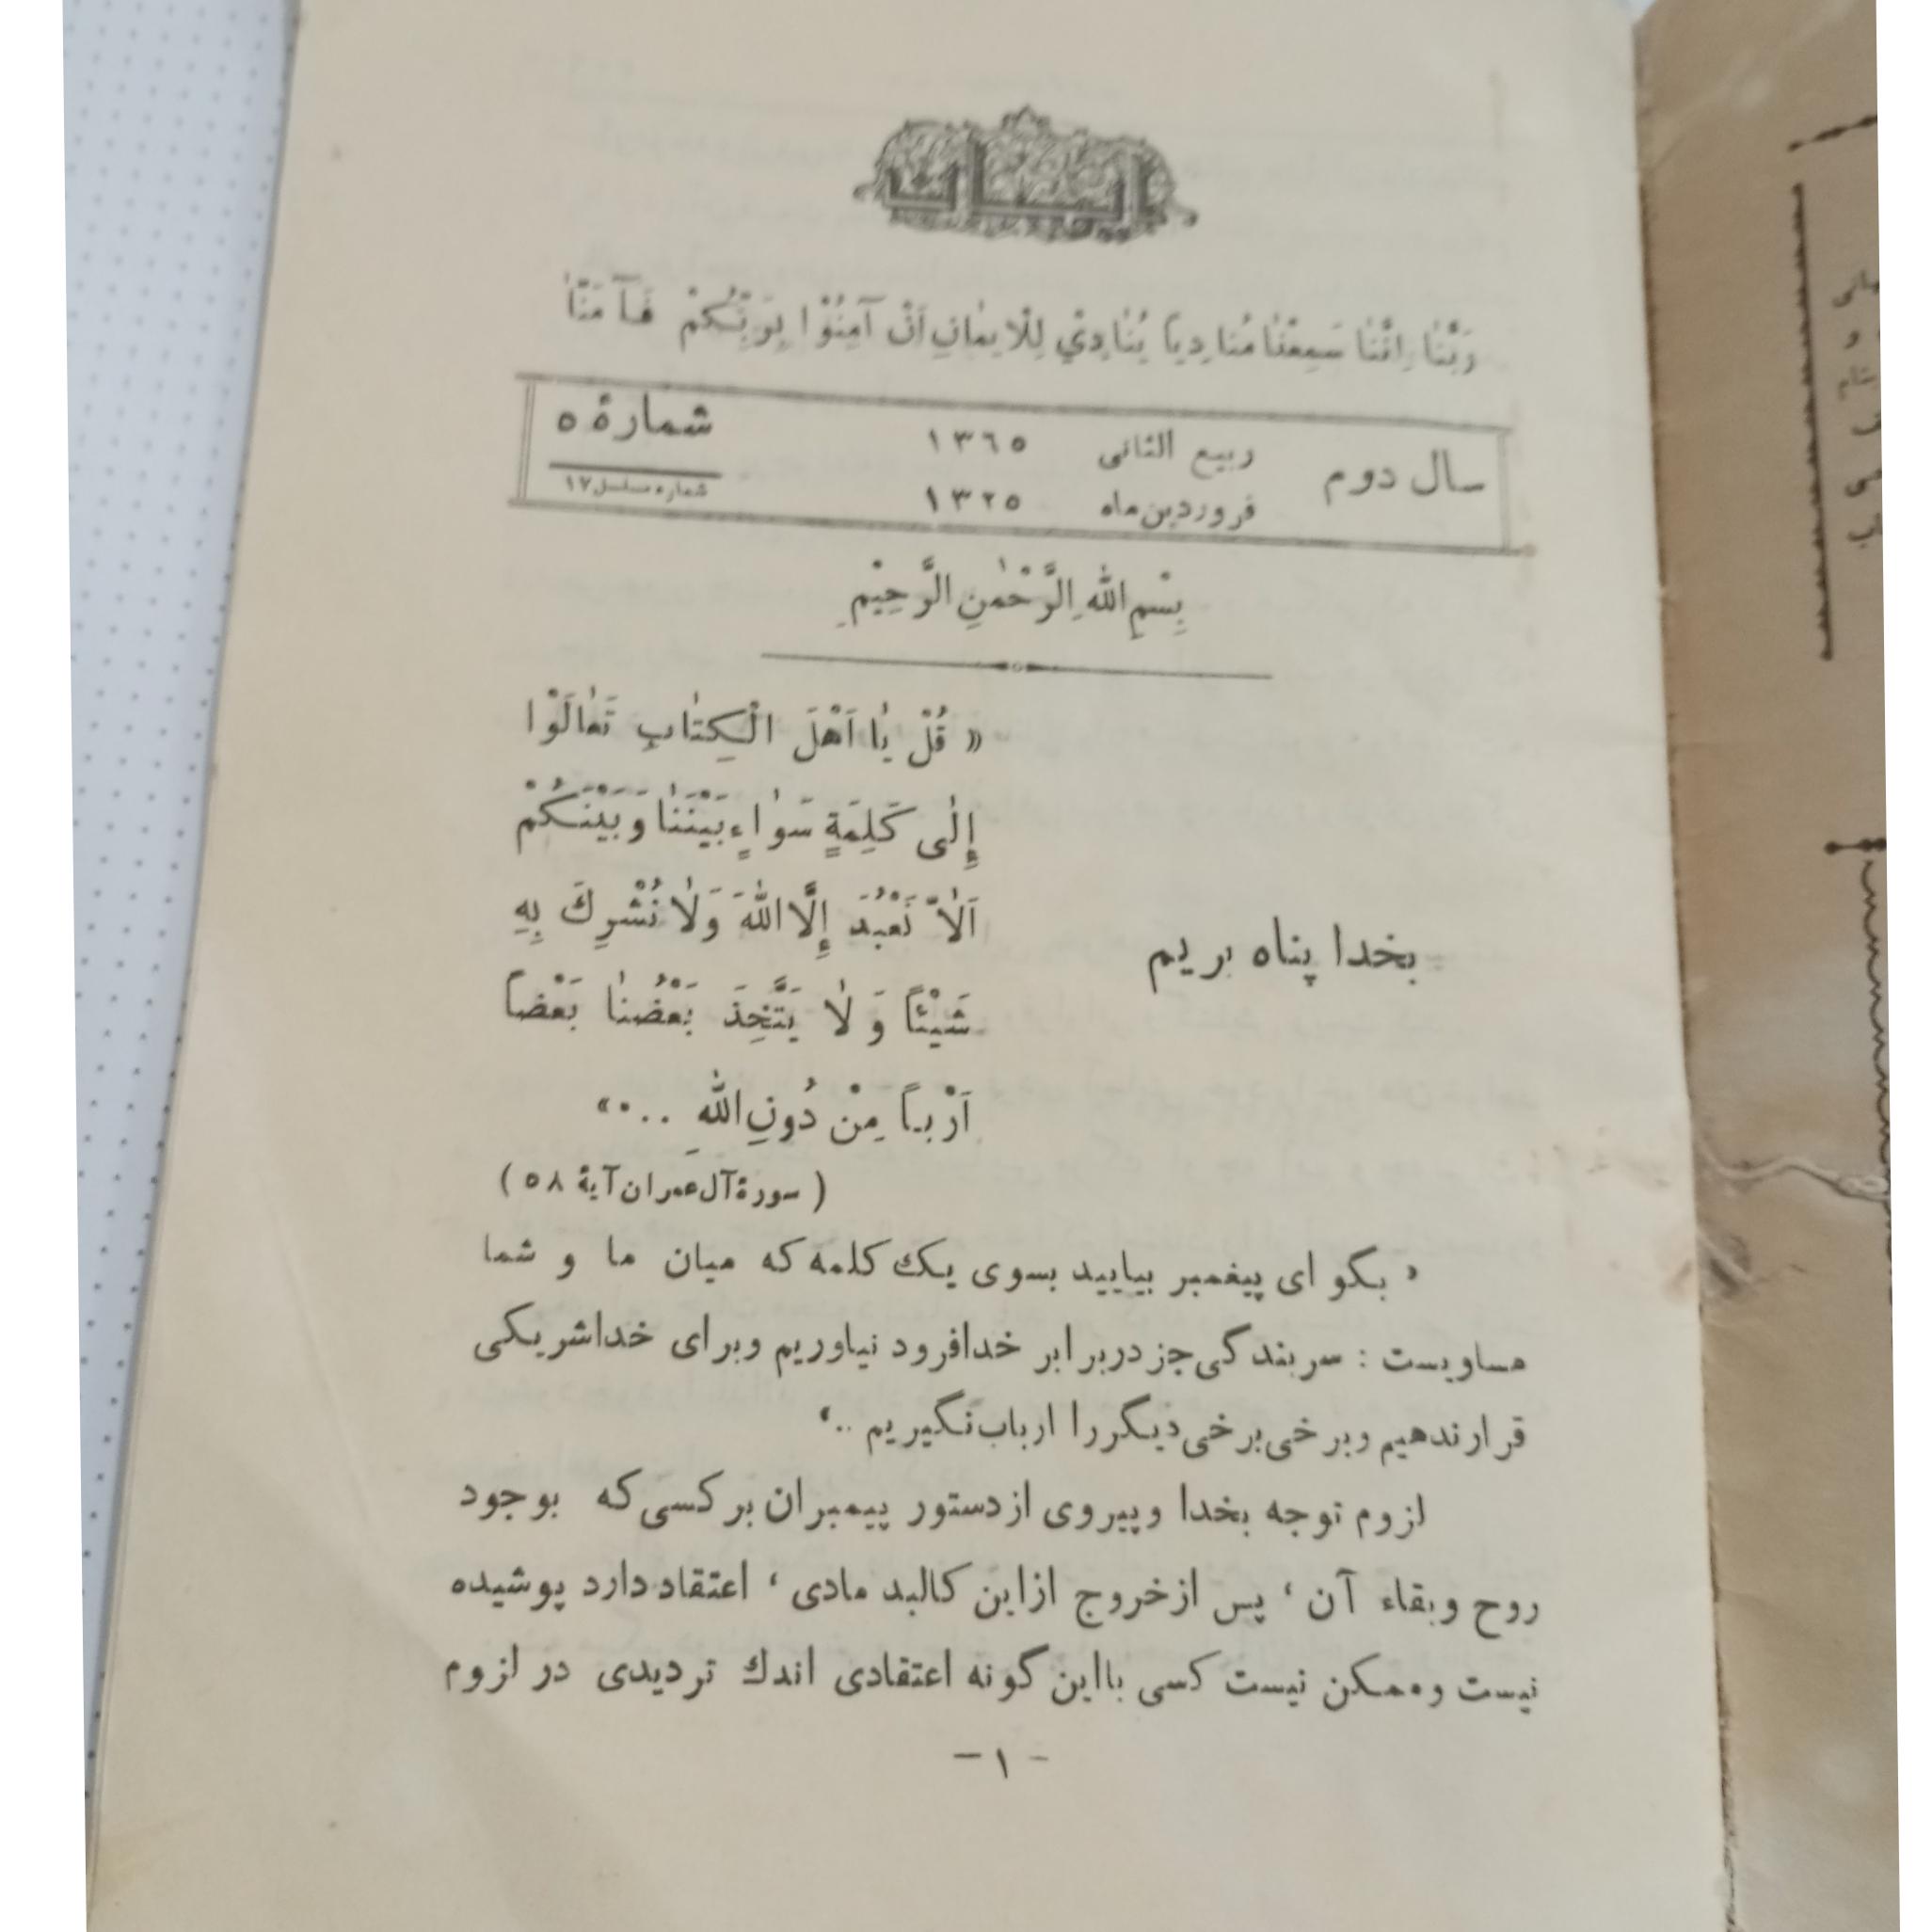 رَبَّنٰا اِنَّنٰا سَمِعْنٰا مُنٰادِیاً یُنٰادِیْ لِلْایمٰانِ اَنْ آمِنُوْا بِرَبِّکُمْ فَآمَنّٰا
سال دوم
ربیع الثانی ١٣٦٥
فروردین‌ماه ١٣٢٥
شمارهٔ ٥
شماره مسلسل ١٧
بِسْمِ اللّٰهِ الرَّحْمٰنِ الرَّحِیْمِ
بخدا پناه بریم
« قُلْ یٰا اَهْلَ الْکِتٰابِ تَعٰالَوْا
إِلٰی کَلِمَةٍ سَوٰاءٍ بَیْنَنٰا وَ بَیْنَکُمْ
اَلاّٰ نَعْبُدَ إِلَّا اللّٰهَ وَلٰا نُشْرِكَ بِهِ
شَیْئاً وَ لٰا یَتَّخِذَ بَعْضُنٰا بَعْضاً
اَرْباً مِنْ دُونِ اللّٰهِ ...»
( سورهٔ آل عمران آیهٔ ٥٨ )
« بگو ای پیغمبر بیایید بسوی یك کلمه که میان ما و شما
مساویست : سر بندگی جز در برابر خدا فرود نیاوریم و برای خدا شریکی
قرار ندهیم و برخی برخی دیگر را ارباب نگیریم ..»
لزوم توجه بخدا و پیروی از دستور پیمبران بر کسی که بوجود
روح و بقاء آن ، پس از خروج از این کالبد مادی ، اعتقاد دارد پوشیده
نیست و ممکن نیست کسی با این گونه اعتقادی اندك تردیدی در لزوم
- ١ -